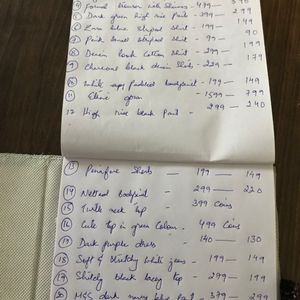 ④ Formal trouser with
⑤ Dark green high rise Pants - 299 — 299
⑥ Zara blue striped shirt - 199 — 149
⑦ Pink striped shirt - 99 — 90
⑧ Denim look Cotton shirt - 299 — 199
⑨ Charcoal black denim Shirt - 229 — 179
⑩ White Padded bodysuit - 199 — 149
⑪ gown - 1599 — 799
12 High rise black Pant - 299 — 240
⑬ Shorts — 199 — 149
⑭ bodysuit - 299 — 220
⑮ Turtle neck top - 399 Coins
⑯ Cute top in green Colour - 499 Coins
⑰ Dark purple dress - 140 — 130
⑱ Soft & Stretchy White jeans - 199 — 149
⑲ black top - 299 — 199
⑳ M&S dark navy blue Pant - 379 — 299